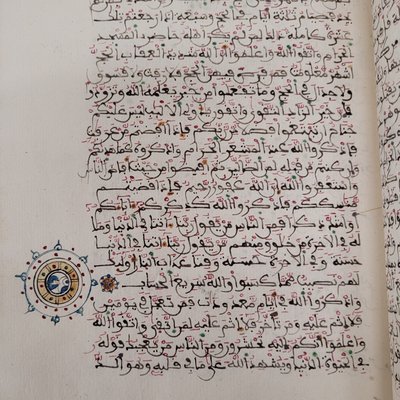 يجد فصيام ثلاثة أيام في الحج وسبعة إذا رجعتم تلك
عشرة كاملة ذلك لمن لم يكن أهله حاضري المسجد
الحرام واتقوا الله واعلموا أن الله شديد العقاب الحج
أشهر معلومات فمن فرض فيهن الحج فلا رفث ولا فسوق
ولا جدال في الحج وما تفعلوا من خير يعلمه الله وتزودوا
فإن خير الزاد التقوى واتقون يأولي الألباب ليس عليكم
جناح أن تبتغوا فضلا من ربكم فإذا أفضتم من عرفت
فاذكروا الله عند المشعر الحرام واذكروه كما هديكم
وإن كنتم من قبله لمن الضالين ثم أفيضوا من حيث أفاض الناس
واستغفروا الله إن الله غفور رحيم فإذا قضيتم
مناسككم فاذكروا الله كذكركم آباءكم
أو أشد ذكرا فمن الناس من يقول ربنا آتنا في الدنيا وما
له في الآخرة من خلاق ومنهم من يقول ربنا آتنا في الدنيا
حسنة وفي الآخرة حسنة وقنا عذاب النار أولئك
لهم نصيب مما كسبوا والله سريع الحساب
واذكروا الله في أيام معدودات فمن تعجل في يومين
فلا إثم عليه ومن تأخر فلا إثم عليه لمن اتقى واتقوا الله
واعلموا أنكم إليه تحشرون ومن الناس من يعجبك قوله
في الحيوة الدنيا ويشهد الله على ما في قلبه وهو ألد